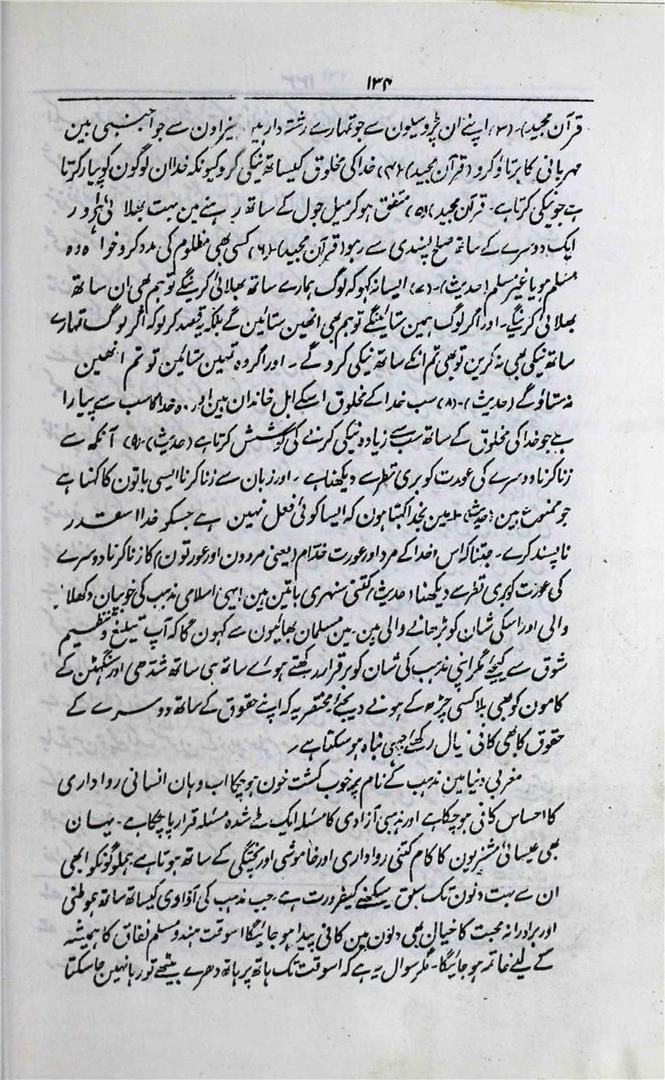 ۱۳۴
قرآن مجید)۔ (۳) اپنے ان پڑوسیون سے جو تمھارے رشتہ دار ہین نیز اون سے جو اجنبی ہین
مہربانی کا برتاؤ کرو (قرآن مجید) (۴) خدا کی مخلوق کیساتھ نیکی کرو کیونکہ خدا ان لوگون کو پیار کرتا
ہے جو نیکی کرتا ہے۔ قرآن مجید) (۵) متفق ہو کر میل جول کے ساتھ رہنے مین بہت بھلائی ہے اور
ایک دوسرے کے ساتھ صلح پسندی سے رہو (قرآن مجید)۔ (۶) کسی بھی مظلوم کی مدد کرو خواہ وہ
مسلم ہو یا غیر مسلم (حدیث)۔ (۷) ایسا نہ کہو کہ لوگ ہمارے ساتھ بھلائی کرینگے تو ہم بھی ان ساتھ
بھلائی کرینگے۔ اور اگر لوگ ہمین ستائینگے تو ہم بھی انھین ستائین گے بلکہ یہ قصد کر لو کہ اگر لوگ تمھارے
ساتھ نیکی بھی نہ کرین تو بھی تم انکے ساتھ نیکی کرو گے۔ اور اگر وہ تمہین ستائین تو تم انھین
نہ ستاؤ گے (حدیث)۔ (۸) سب خدا کے مخلوق اسکے اہل خاندان ہین اور وہ خدا کا سب سے پیارا
ہے جو خدا کی مخلوق کے ساتھ سب سے زیادہ نیکی کرنے کی کوشش کرتا ہے (حدیث)۔ (۹) آنکھ سے
زنا کرنا دوسرے کی عورت کو بری نظر سے دیکھنا ہے۔ اور زبان سے زنا کرنا ایسی باتون کا کہنا ہے
جو ممنوع ہین (حدیث) ۱۰ مین بخدا کہتا ہون کہ ایسا کوئی فعل نہین ہے جسکو خدا اسقدر
ناپسند کرے۔ جتنا کہ اس (خدا کے مرد اور عورت خدّام (یعنی مردون اور عورتون) کا زنا کرنا دوسرے
کی عورت کو بری نظر سے دیکھنا (حدیث) کتنی سنہری باتین ہین! یہی اسلامی مذہب کی خوبیان دکھلانے
والی اور اسکی شان کو بڑھانے والی ہین۔ مین مسلمان بھائیون سے کہون گا کہ آپ تبلیغ و تنظیم
شوق سے کیجئے مگر اپنی مذہب کی شان کو برقرار رکھتے ہوئے ساتھ ہی ساتھ شدھی اور سنگھٹن کے
کامون کو بھی بلا کسی چڑھ کے ہونے دیجئے! مختصر یہ کہ اپنے حقوق کے ساتھ دوسرے کے
حقوق کا بھی کافی خیال رکھئے اچھی نباہ ہو سکتا ہے۔
مغربی دنیا مین مذہب کے نام پر خوب کشت خون ہو چکا اب وہان انسانی رواداری
کا احساس کافی ہو چکا ہے اور مذہبی آزادی کا مسئلہ ایک طے شدہ مسئلہ قرار پا چکا ہے۔ یہان
بھی عیسائی مشنریون کا کام کتنی رواداری اور خاموشی اور پختگی کے ساتھ ہوتا ہے ہملوگونکو ابھی
ان سے بہت دنون تک سبق سیکھنے کیضرورت ہے۔ جب مذہب کی آزادی کیساتھ ساتھ ہموطنی
اور برادرانہ محبت کا خیال بھی دلون مین کافی پیدا ہو جائیگا اسوقت ہندو مسلم نفاق کا ہمیشہ
کے لیے خاتمہ ہو جائیگا۔ مگر سوال یہ ہے کہ اسوقت تک ہاتھ پر ہاتھ دھرے بیٹھے تو رہا نہین جا سکتا